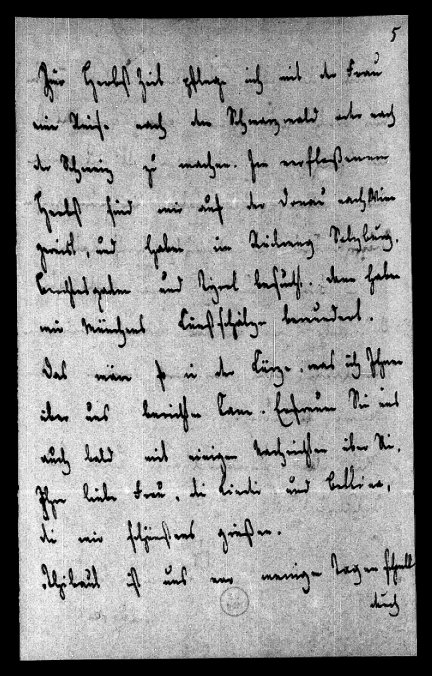 5
Zur Herbst Zeit pflege ich mit der Frau
eine Reise nach dem Schwarzwald oder nach
der Schweiz zu machen. Im verflossenen
Herbst sind wir auf der Donau nach Wien
gereist, und haben im Rückweg Salzburg,
Berchtesgaden und Tyrol besucht. dann haben
wir Münchens Kunstschätze bewundert.
Das wäre so in der Kürze, was ich Ihnen
über uns berichten kann. Erfreuen Sie uns
auch bald mit einigen Nachrichten über Sie,
Ihre liebe Frau, die und Bettina,
die wir schönstens grüßen.
ist uns vor wenigen Tagen schnell
durch